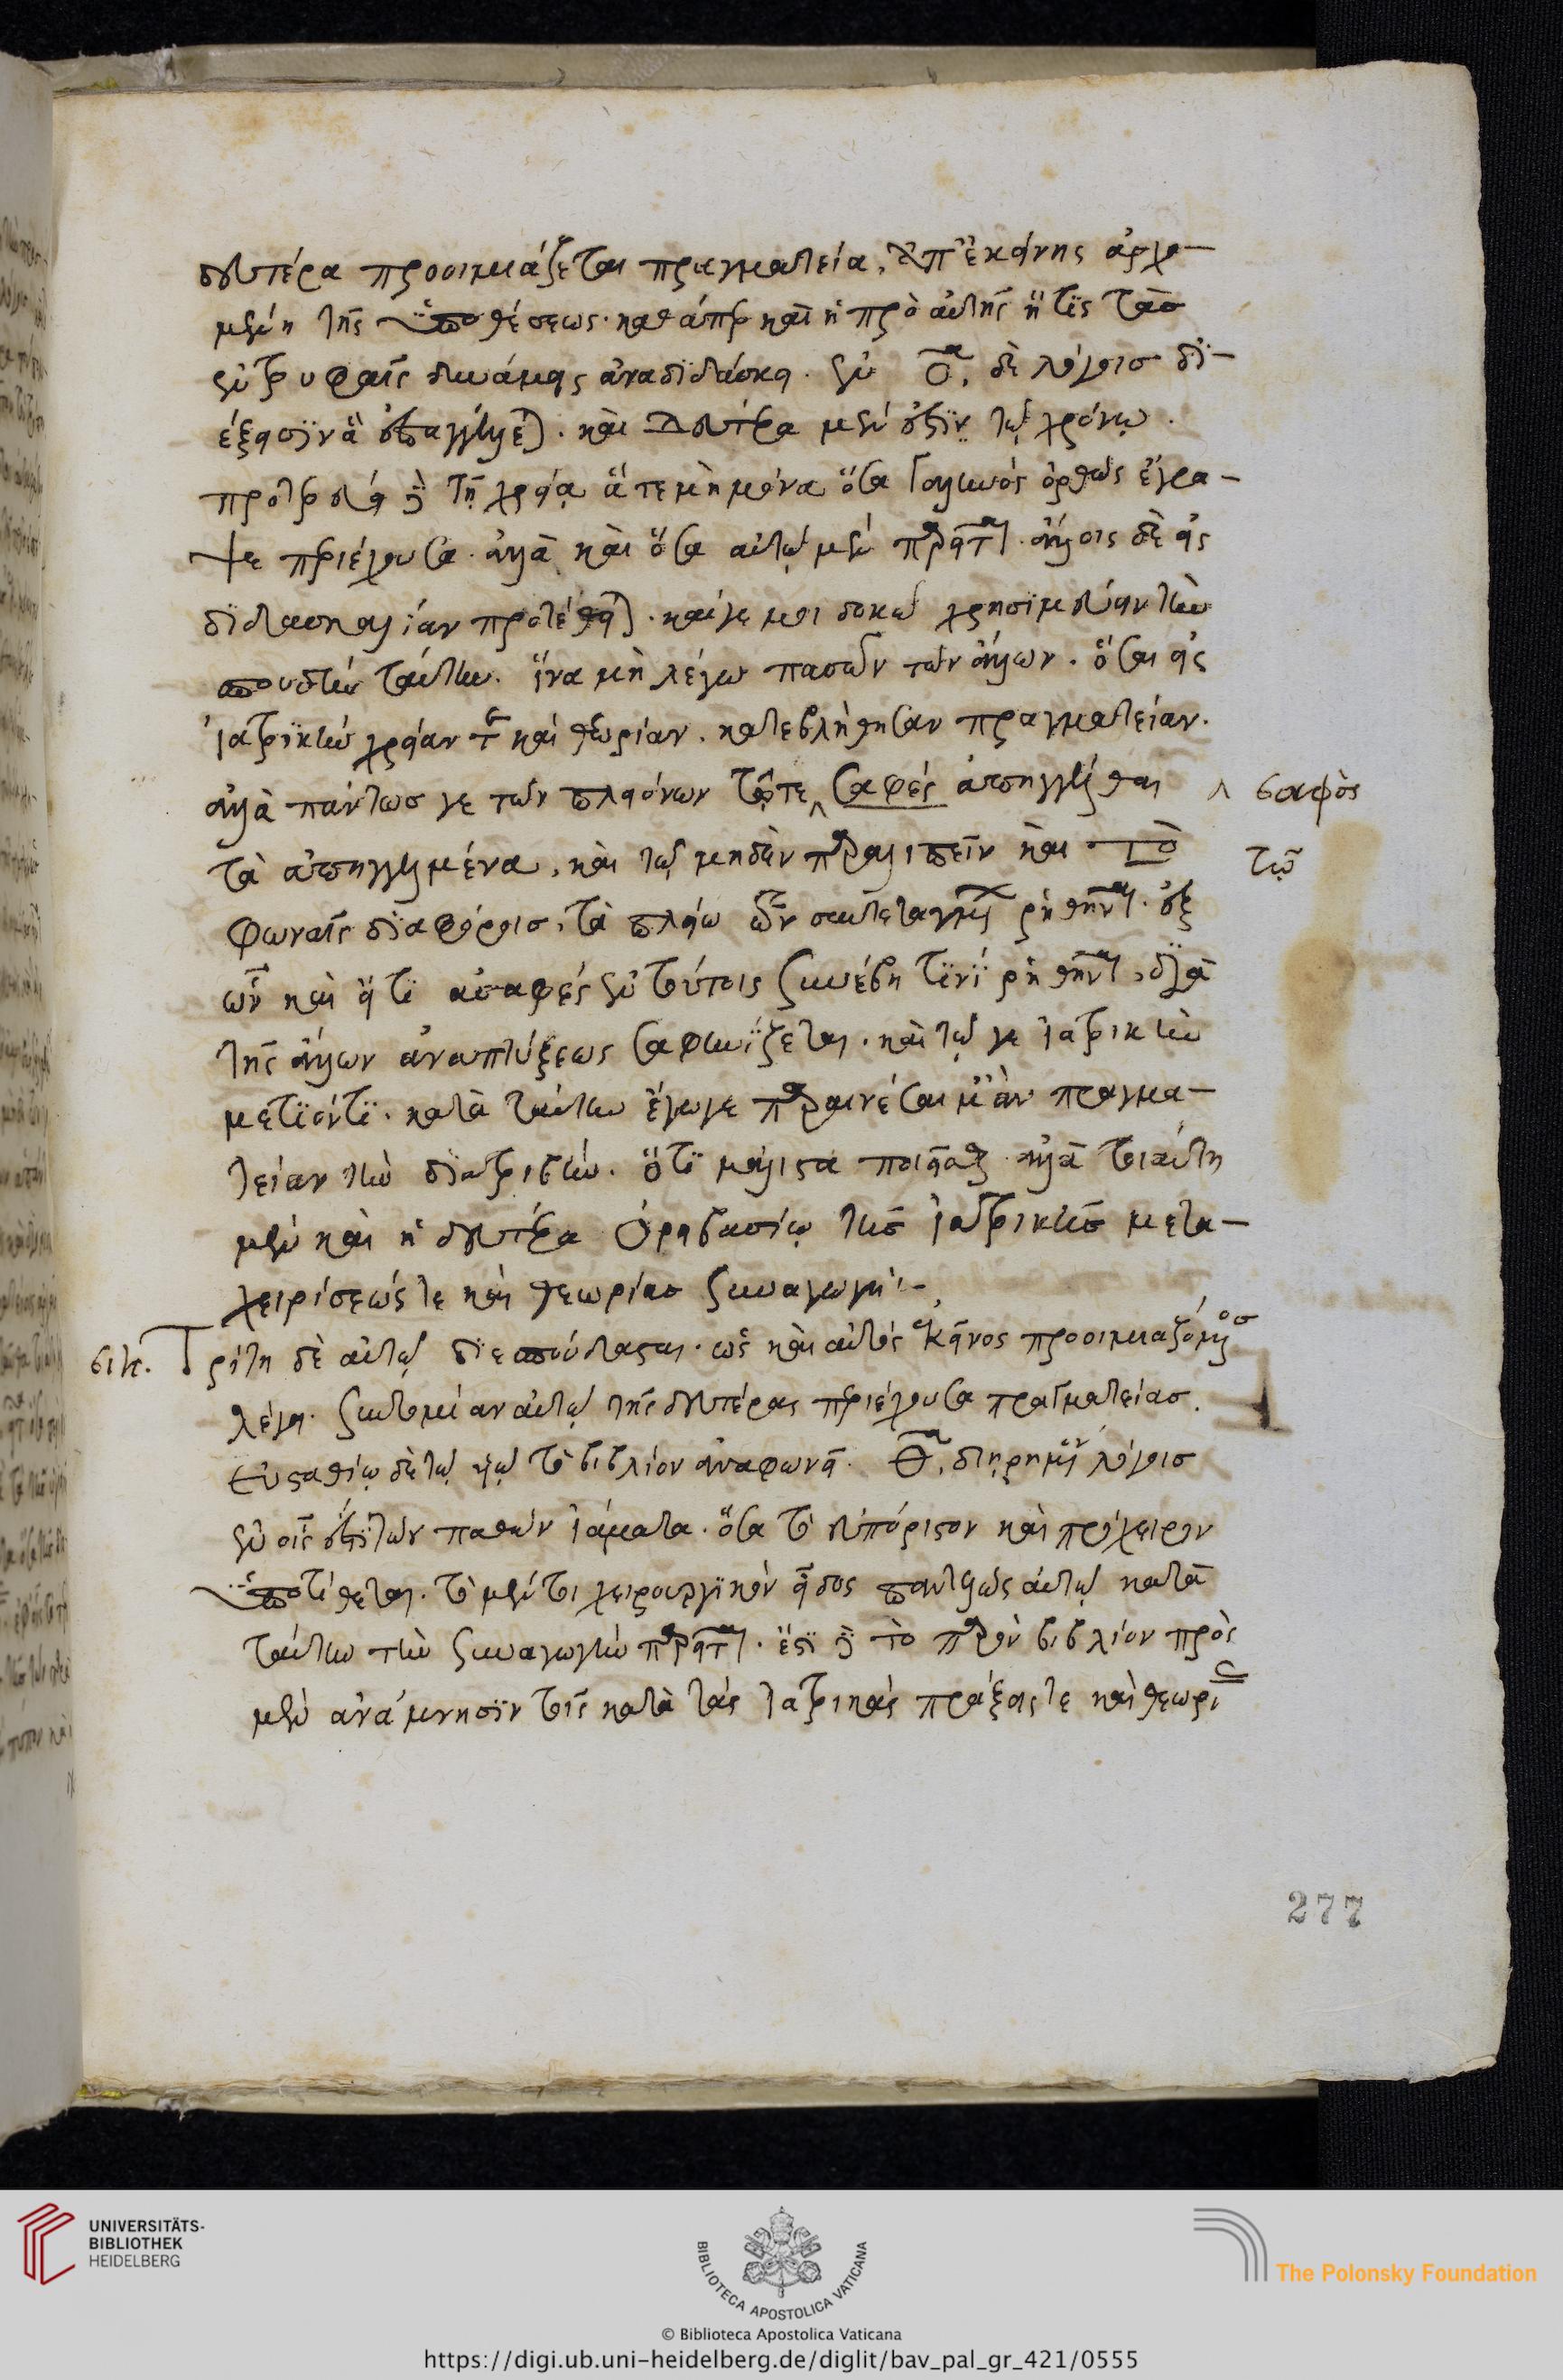 δευτέρα προοιμιάζεται πραγματεία, ἀπ' ἐκείνης ἀρχο-
μένη τῆς ὑποθέσεως· καθάπερ καὶ ἡ πρὸ αὐτῆς ἥτις τὰσ
ἐν τροφαῖς δυνάμεις ἀναδιδάσκει. ἐν ο. δὲ λόγοισ δι-
έξεισϊν ἃ ἐπαγγέλλεται. καὶ δευτέρα μὲν ἐστὶν τῷ χρόνῳ.
προτερεύει δὲ τῇ χρείᾳ ἅτε μὴ μόνα ὅσα Γαληνὸς ὀρθῶς ἔγρα-
ψε περιέχουσα. ἀλλὰ καὶ ὅσα αὐτῷ μὲν παρεῖται. ἄλλοις δὲ εἰς
διδασκαλίαν προτέθειται. καίγε μοι δοκῶ χρησιμεύειν τὴν
σπουδὴν ταύτην. ἵνα μὴ λέγω πασῶν τῶν ἄλλων. ὅσαι εἰς
ἰατρικὴν χρείαν τε καὶ θεωρίαν. κατεβλήθησαν πραγματείαν.
ἀλλὰ πάντωσ γε τῶν πλειόνων τῷτε ^ σαφές ἀπηγγέλθαι ^ σαφὸς
τὰ ἀπηγγελμένα, καὶ τῷ μηδὲν παραλιπεῖν καὶ τὸ τῷ
φωναῖς διαφόροισ, τὰ πλείω ὧν συντέτακται ῥηθῆναι. ἐξ
ὧν καὶ εἴ τι ἀσαφές ἐν τούτοις συνέβη τινὶ ῥηθῆναι, διὰ
τῆς ἄλλων ἀναπτύξεως σαφηνίζεται. καὶ τῷ γε ἰατρικὴν
μετιόντι. κατὰ ταύτην ἔγωγε παραινέσαιμ' ἂν πραγμα-
τείαν τὴν διατριβήν. ὅτι μάλιστα ποιεῖσθαι. ἀλλὰ τοιαύτη
μὲν καὶ ἡ δευτέρα Ὀρειβασίῳ τῆσ ἰατρικῆσ μετα-
χειρίσεώς τε καὶ θεωρίασ συναγωγή:-
σιη. Τρίτη δὲ αὐτῷ διεσπούδασται. ὡς καὶ αὐτὸς ἐκεῖνος προοιμιαζόμενοσ
λέγει. συντομίαν αὐτῷ τῆς δευτέρας περιέχουσα πραγματείασ.
Εὐσταθίῳ δὲ τῷ υἱῷ τὸ βιβλίον ἀναφωνεῖ. Θ. διῃρημένον λόγοισ
ἐν οἷς ἐστὶ τῶν παθῶν ἰάματα. ὅσα τὸ εὐπόριστον καὶ πρόχειρον
ὑποτίθεται. τὸ μέντοι χειρουργικὸν εἶδος παντελῶς αὐτῷ κατὰ
ταύτην τὴν συναγωγὴν παρεῖται. ἔστι δὲ τὸ παρὸν βιβλίον πρὸς
μὲν ἀνάμνησιν τοῖς κατὰ τὰς ἰατρικὰς πράξεις τε καὶ θεωρί
277
UNIVERSITÄTS-
BIBLIOTHEK
HEIDELBERG
BIBLIOTECA APOSTOLICA VATICANA
The Polonsky Foundation
© Biblioteca Apostolica Vaticana
https://digi.ub.uni-heidelberg.de/diglit/bav_pal_gr_421/0555